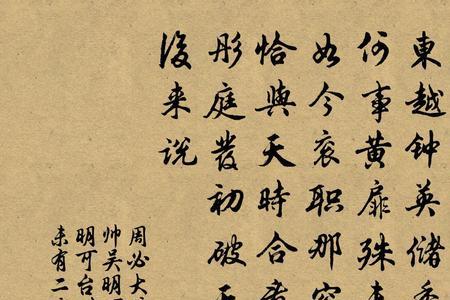 東越钟英储
何事黄扉殊
如今衮职那
恰與天時合
彤庭發初破
後来说
周必大
帅吴明
明可台
未有二